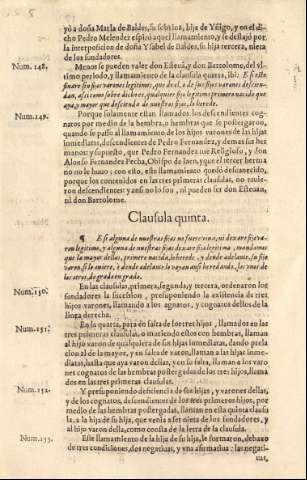 yò a doña Maria de Baldes, su sobrina, hija de Yñigo, y en el dicho
Pedro Melendez espirò aquel llamamiento, y se desajò por
la interposicion de doña Ysabel de Baldes, su hija tercera, nieta
de los fundadores.
Num. 148. Menos se pueden valer don Esteuā, y don Bartolome, del vltimo
periodo, y llamamiento de la clausula quarta, ibi. E si este
finare sin fijo varones legitimo, que del, è de sus fijos varones
descendan, assi como sobredicho es, qualquier fijo legitimo primero nacido que
aya, y mayor que descienda de nuestras fijas, lo herede.
Num. 149. Porque solamente estan llamados los descendientes cognatos
por medio de la hembra, ò hembras que se postergaron,
quando se passò al llamamiento de los hijos varones de las hijas
inmediatas, descendientes de Pedro Fernandez, y demas sus hermanos:
y supuesto, que Pedro Fernandez fue Religioso, y don
Alonso Fernandez Pecha, Obispo de Iaen, y que el tercer hermano
no le huuo: con esto, este llamamiento quedò desuanecido,
porque los contenidos en las tres primeras clausulas, no tuuieron
descendientes: y ansi no lo son, ni pueden ser don Esteuan,
ni don Bartolome.
Clausula quinta.
¶ E si alguna de nuestras fijas no fuere viua, ni dexare fijo varon
legitimo, y alguna de nuestras fijas dexare fija legitima, mandamos
que la mayor dellas, primero nacida, lo herede, y donde adelante, su fijo
varon, si lo ouiere, è donde adelante lo vayan ansi heredando, los vnos de
los otros, de grado en grado.
Num. 150. En las clausulas, primera, segunda, y tercera, ordenaron los
fundadores la succession, presuponiendo la existencia de tres
hijos varones, llamando a los agnatos, y cognatos dellos de la
linea derecha.
Num. 151. En la quarta, para en falta de los tres hijos, llamados en las
tres primeras clausulas, ò muriendo estos con hembras, llaman
al hijo varon de qualquiera de sus hijas inmediatas, dando prelacion
al de la mayor, y en falta de varon, llaman a las hijas inmediatas,
hasta que aya varon dellas, y en su falta, llaman a los varones
cognatos de las hembras postergadas de los tres hijos, llamados
en las tres primeras clausulas.
Num. 152. Y presuponiendo deficiencia de sus hijas, y varones dellas,
y de los cognatos, descendientes de los tres primeros hijos, por
medio de las hembras postergadas, llaman en esta quinta clausula,
a la hija de su hija, que venia a ser nieta de los fundadores, y
al hijo varon della, como consta de la letra de la clausula.
Num. 153. Este llamamiento de la hija de su hija, le formaron, debaxo
de tres condiciones, dos negatiuas, y vna afirmatiua: las negati-
uas,